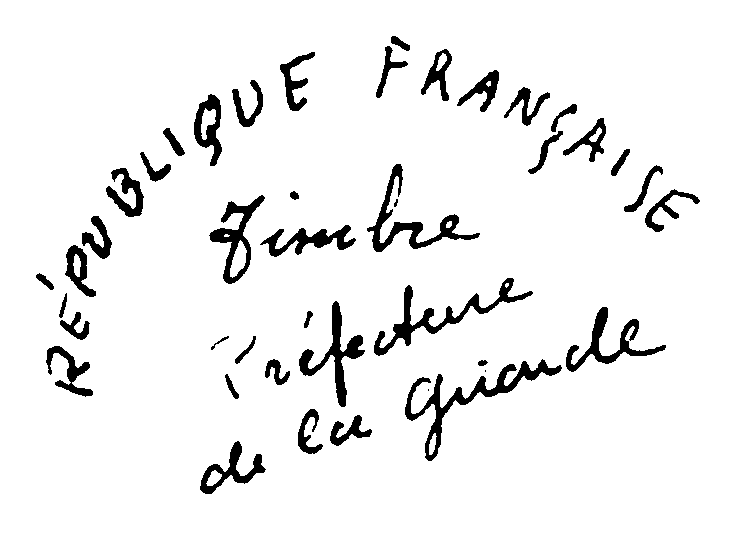 RÉPUBLIQUE FRANÇAISE
Timbre
Préfecture
de la Gironde